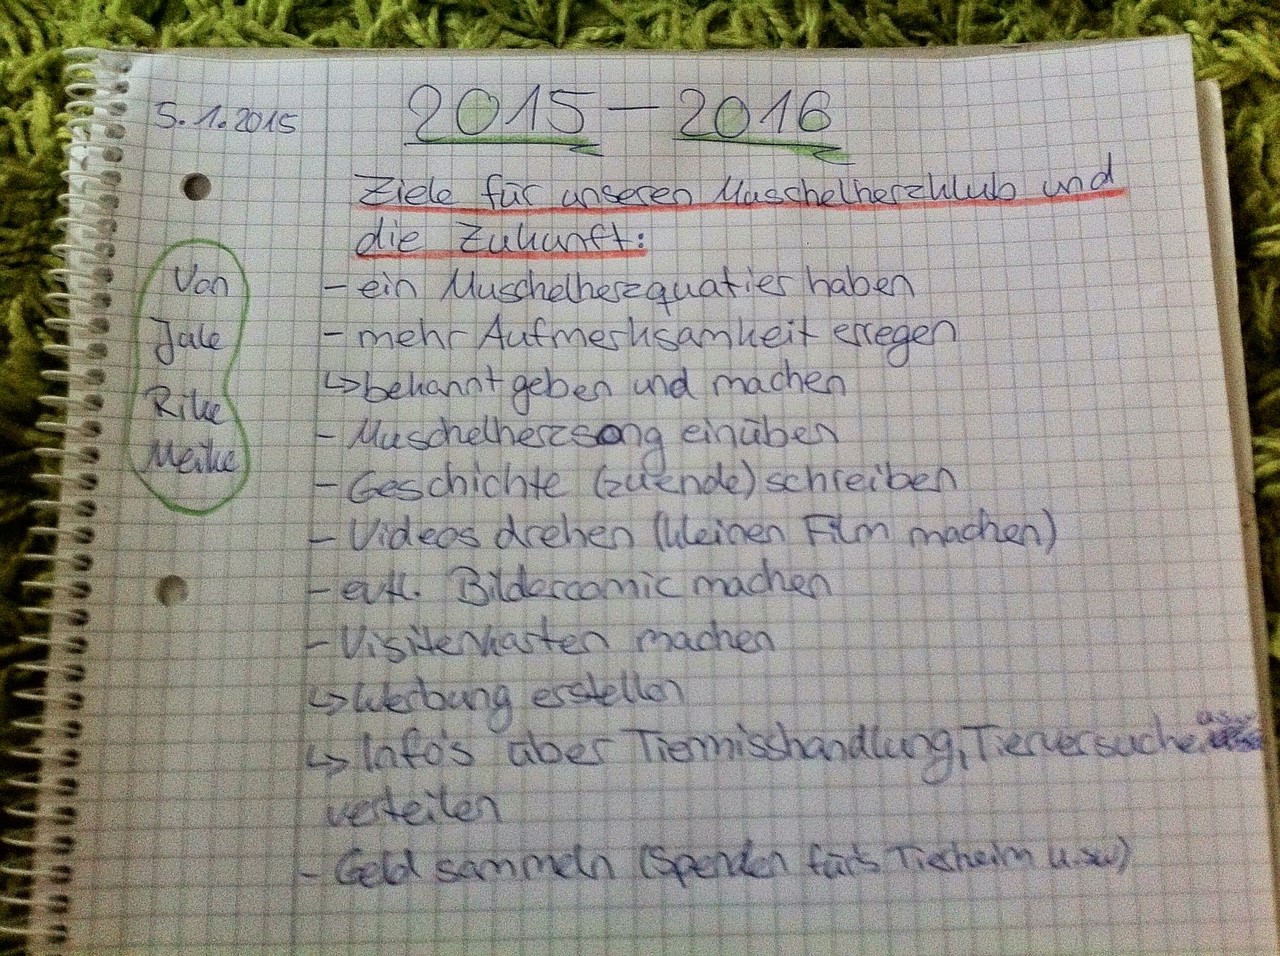 5.1.2015
2015 – 2016
Ziele für unseren Muschelherzklub und
die Zukunft:
Von
Jale
Rike
Meike
- ein Muschelherzquatier haben
- mehr Aufmerksamkeit erregen
↳ bekannt geben und machen
- Muschelherzsong einüben
- Geschichte (zuende) schreiben
- Videos drehen (kleinen Film machen)
- evtl. Bildercomic machen
- Visitenkarten machen
↳ Werbung erstellen
↳ Info's über Tiermisshandlung, Tierversuche,
verteilen
- Geld sammeln (Spenden für's Tierheim u.sw)